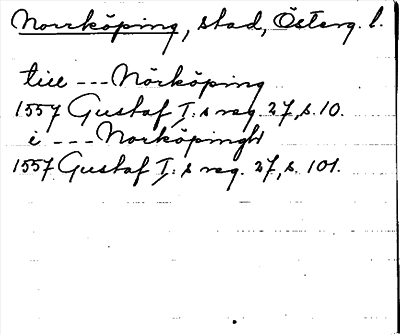 Norrköping, stad, Österg. l.
till --- Nörköping
1557 Gustaf I:s reg. 27, s. 10.
i --- Norköpingh
1557 Gustaf I:s reg. 27, s. 101.